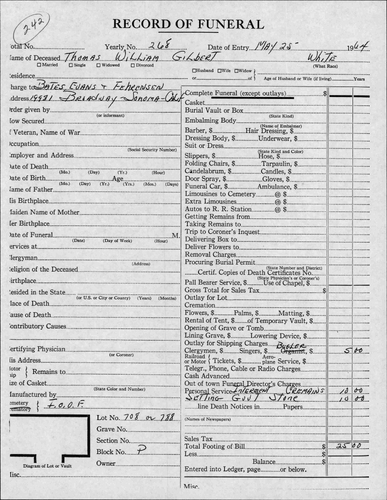 242
RECORD OF FUNERAL
otal No. Yearly No. 268 Date of Entry May 25 1964
ame of Deceased Thomas William Gilbert White
Married Single Widowed Divorced Husband Wife Widow (What Race)
esidence or Age of Husband or Wife (if living) Years
harge to Bates, Evans & Fehrensen
19931 Broadway Sonoma-Calif
Complete Funeral (except outlays) $
Casket
rder given by Burial Vault or Box
(or informant) (State Kind)
ow Secured Embalming Body
Veteran, Name of War Barber, $ Hair Dressing, $
Dressing Body, $ Underwear, $
ccupation Suit or Dress
(Social Security Number) (State Kind and Color)
mployer and Address Slippers, $ Hose, $
ate of Death Folding Chairs, $ Tarpaulin, $
(Mo.) (Day) (Yr.) (Mo.) (Day) (Yr.)
Candelabrum, $ Candles, $
ate of Birth Age Door Spray, $ Gloves, $
(Mo.) (Day) (Yr.) (Yrs.) (Mo.) (Days)
ame of Father Funeral Car, $ Ambulance, $
is Birthplace Limousines to Cemetery @ $
Extra Limousines @ $
aiden Name of Mother Autos to R. R. Station @ $
er Birthplace Getting Remains from
Taking Remains to
ate of Funeral M. Trip to Coroner's Inquest
(Date) (Day of Week) (Hour)
Delivering Box to
ervices at Deliver Flowers to
lergyman Removal Charges
Procuring Burial Permit
(State Number and District)
eligion of the Deceased Certif. Copies of Death Certificates No.
(State Physician's or Coroner's)
irthplace Pall Bearer Service, $ Use of Chapel, $
esided in the State Gross Total for Sales Tax $
(or U.S. or City or County) (Years) (Months)
Outlay for Lot
lace of Death Cremation
ause of Death Flowers, $ Palms, $ Matting, $
Rental of Tent, $ of Temporary Vault, $
ontributory Causes Opening of Grave or Tomb
Lining Grave, $ Lowering Device, $
ertifying Physician Outlay for Shipping Charges
(or Coroner)
Clergymen, $ Singers, $ Organist, $ 5 00
is Address Railroad or Motor Tickets, $ Aeroplane Service, $
Remains to Telegr., Phone, Cable or Radio Charges
Cash Advanced
ize of Casket Out of town Funeral Director's Charges
(State Color and Number)
anufactured by Personal Service Interment Cremains 10 00
Setting Gov't Stone 10 00
metery I.O.O.F. line Death Notices in Papers
Lot No. 708 or 788
(Names of Newspapers)
Grave No.
Section No. Sales Tax
Block No. P Total Footing of Bill $ 25 00
Less $
Owner Balance $
Diagram of Lot or Vault Entered into Ledger, page or below.
isc. Misc.